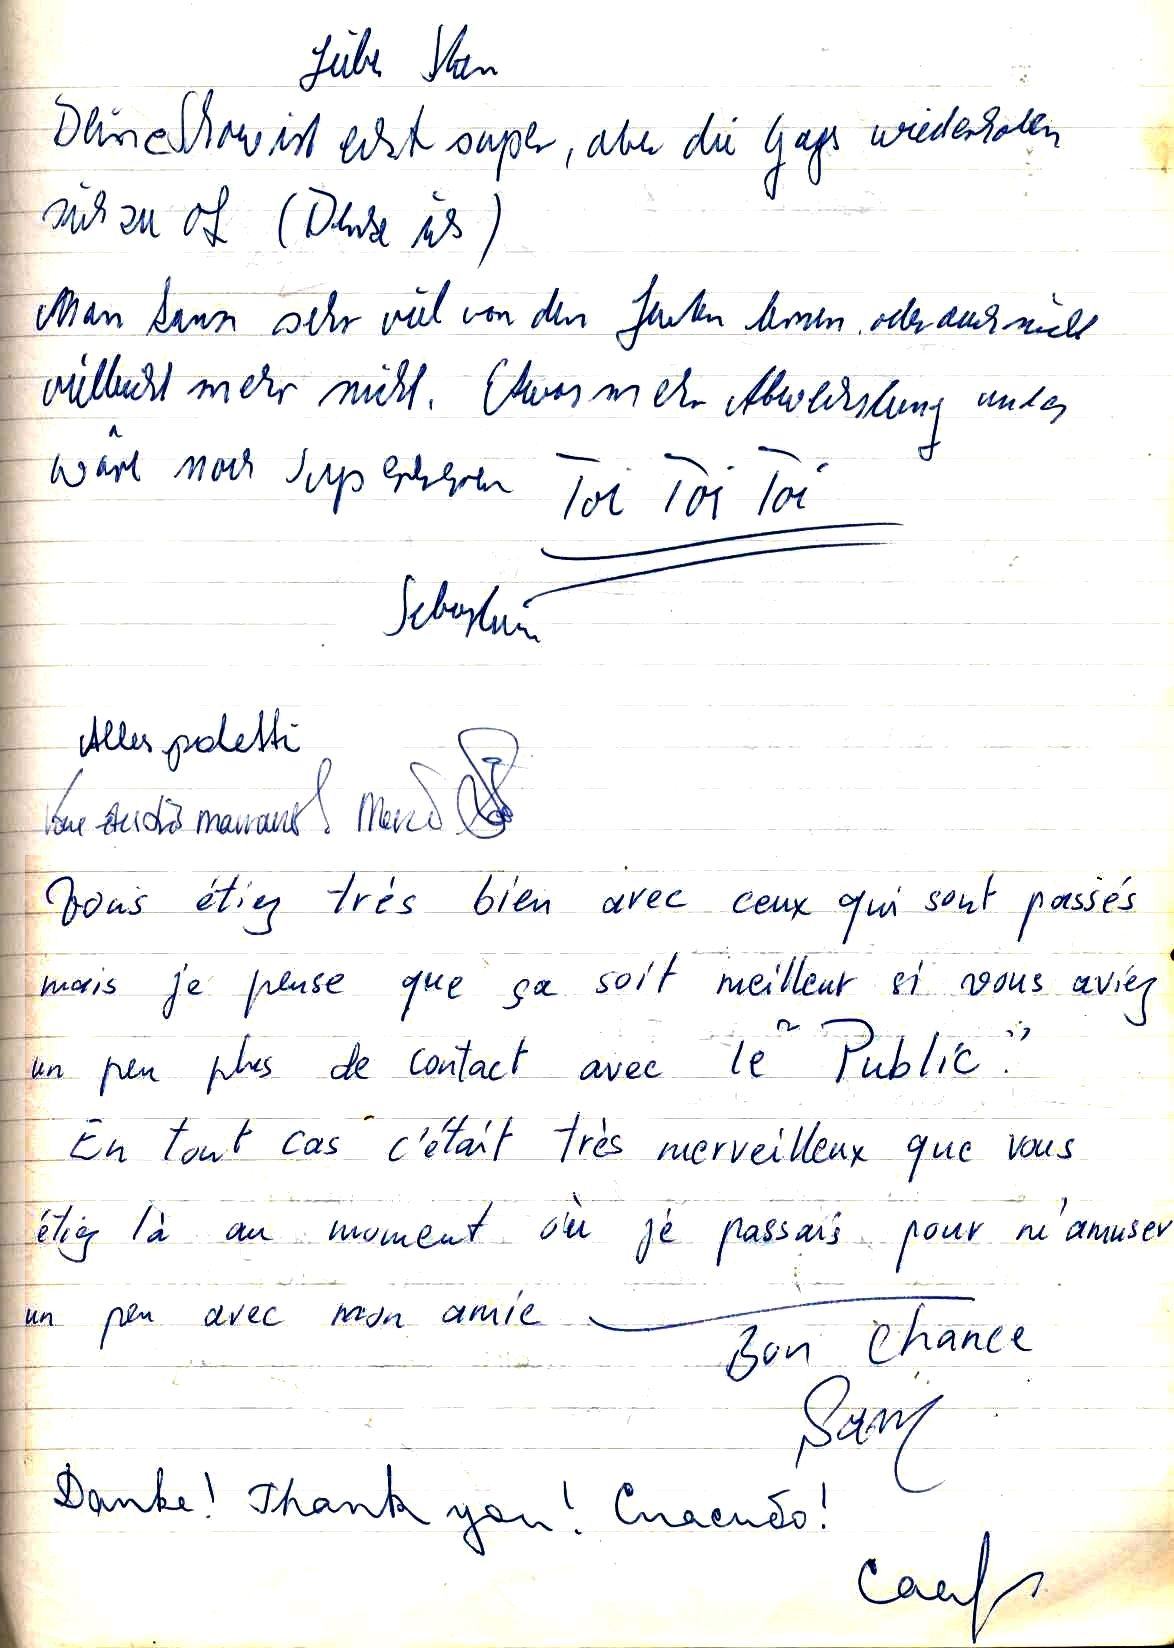 Liebe Stan
Deine Show ist echt super, aber die Gags wiederholen
sich zu oft (Denke ich)
Man kann sehr viel von den Leuten lernen oder auch nicht
vielleicht mehr nicht. Etwas mehr Abwechslung
wäre noch
Toi Toi Toi
Sebastian
Alles paletti
marrant! Merci
Vous étiez très bien avec ceux qui sont passés
mais je pense que ça soit meilleur si vous aviez
un peu plus de contact avec le "Public".
En tout cas c'était très merveilleux que vous
étiez là au moment où je passais pour m'amuser
un peu avec mon amie
Bon chance
Sam
Danke! Thank you! Спасибо!